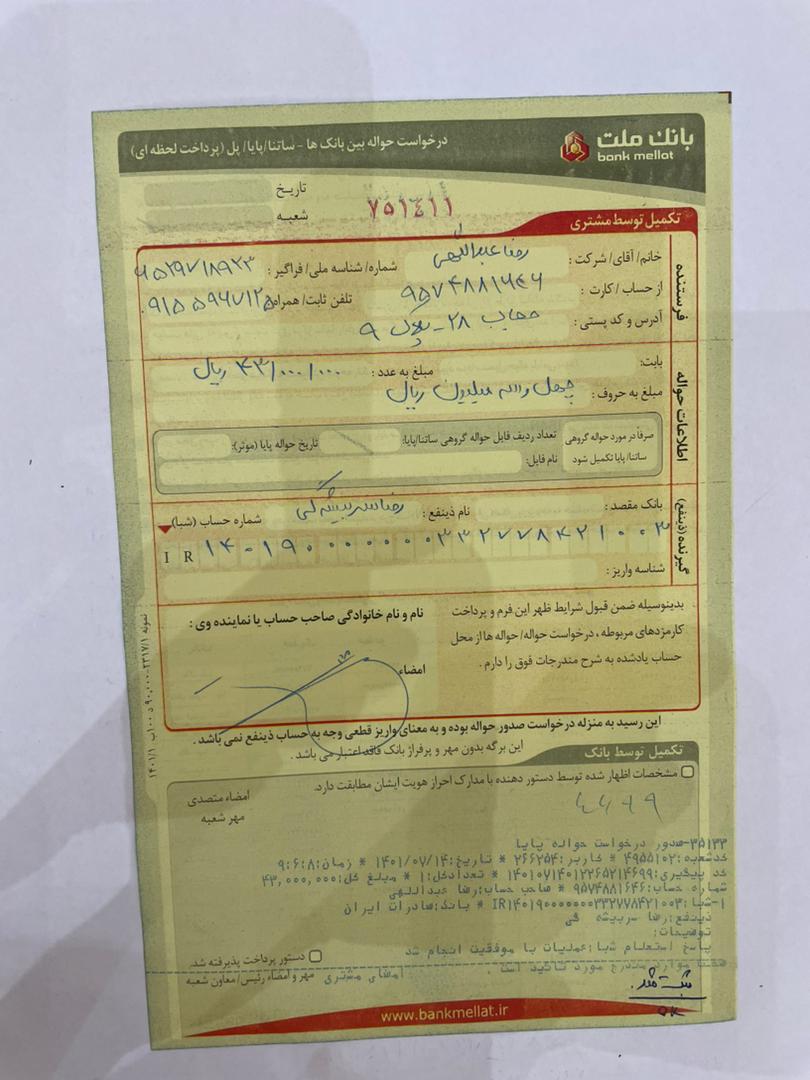 بانک ملت
bank mellat
درخواست حواله بین بانک ها - ساتنا/پایا/ پل (پرداخت لحظه ای)
تاریخ
شعبه
۷۵۱۴۱۱
تکمیل توسط مشتری
فرستنده
خانم/ آقای/ شرکت : رضا عبداللهی شماره/ شناسه ملی/ فراگیر :
از حساب / کارت : ۹۵۷۴۸۸۱۶۴۶ تلفن ثابت/ همراه: ۰۹۱۵۵۹۶۷۱۲۵
آدرس و کد پستی : ۲۸ - پلاک ۹
اطلاعات حواله
بابت:
مبلغ به عدد : ۴۳/۰۰۰/۰۰۰ ریال
مبلغ به حروف : چهل و سه میلیون ریال
صرفاً در مورد حواله گروهی ساتنا/ پایا تکمیل شود
تعداد ردیف فایل حواله گروهی ساتنا/پایا:
تاریخ حواله پایا (موثر):
نام فایل:
گیرنده (ذینفع)
بانک مقصد : نام ذینفع : رضا سربیشه گی شماره حساب (شبا)
IR ۱۴۰۱۹۰۰۰۰۰۰۰۳۳۲۷۷۸۴۲۱۰۰۳
شناسه واریز :
بدینوسیله ضمن قبول شرایط ظهر این فرم و پرداخت
کارمزدهای مربوطه ، درخواست حواله/ حواله ها از محل
حساب یادشده به شرح مندرجات فوق را دارم .
نام و نام خانوادگی صاحب حساب یا نماینده وی :
امضاء
این رسید به منزله درخواست صدور حواله بوده و به معنای واریز قطعی وجه به حساب ذینفع نمی باشد .
این برگه بدون مهر و پرفراژ بانک فاقد اعتبار می باشد .
تکمیل توسط بانک
مشخصات اظهار شده توسط دستور دهنده با مدارک احراز هویت ایشان مطابقت دارد.
امضاء متصدی
مهر شعبه
۳۵۱۳۳-صدور درخواست حواله پایا
کدشعبه:۴۹۵۵۱۰۲ * کاربر:۲۶۶۲۵۴ * تاریخ:۱۴۰۱/۰۷/۱۴ * زمان:۹:۶:۸
کد پیگیری:۱۴۰۱۰۷۱۴۰۱۲۲۶۵۲۱۴۶۹۹ * تعدادکل:۱ * مبلغ کل:۴۳,۰۰۰,۰۰۰
شماره حساب:۹۵۷۴۸۸۱۶۴۶ * صاحب حساب:رضا عبداللهی
۱-شبا:IR۱۴۰۱۹۰۰۰۰۰۰۰۳۳۲۷۷۸۴۲۱۰۰۳ * بانک:صادرات ایران
ذینفع:رضا سربیشه گی
توضیحات:
پاسخ استعلام شبا:عملیات با موفقیت انجام شد
مندرج مورد تائید است
امضای مشتری
دستور پرداخت پذیرفته شد.
مهر و امضاء رئیس/ معاون شعبه
ثبت شد.
ok
www.bankmellat.ir